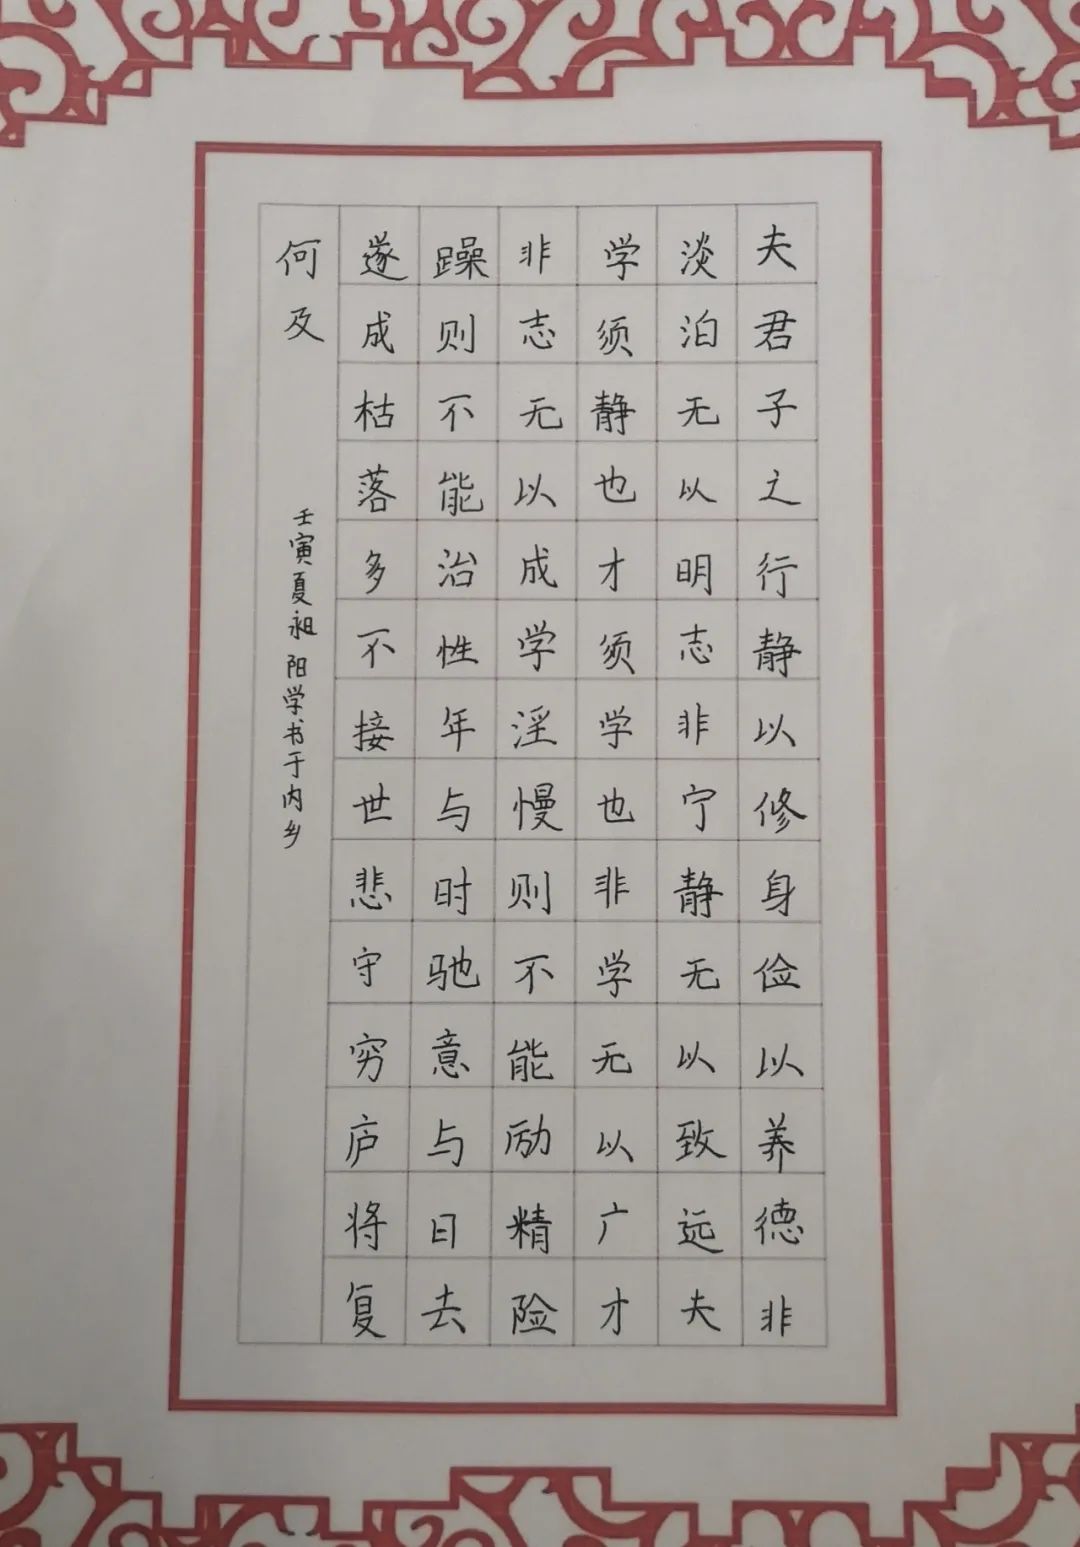 夫君子之行静以修身俭以养德非
淡泊无以明志非宁静无以致远夫
学须静也才须学也非学无以广才
非志无以成学淫慢则不能励精险
躁则不能治性年与时驰意与日去
遂成枯落多不接世悲守穷庐将复
何及
壬寅夏昶阳学书于内乡